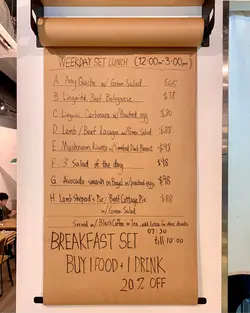 WEEKDAY SET LUNCH (12:00nn-3:00pm)
A Any Quiche w/ Green Salad $65
B Linguine Beef Bolognese $78
C Linguini Carbonara w/ Poached egg $80
D Lamb / Beef Lasagne w/ Green Salad $88
E Mushroom w/ Smoked Duck Breast $98
F 3 Salad of the day $98
G Avocado smash on Bagel w/ poached eggs $98
H Lamb Sheperd's Pie / Beef Cottage Pie w/ Green Salad $88
Served w/ Black Coffee or Tea, add for other drinks
BREAKFAST SET 07:30 till 10:00
BUY 1 FOOD + 1 DRINK
20% OFF